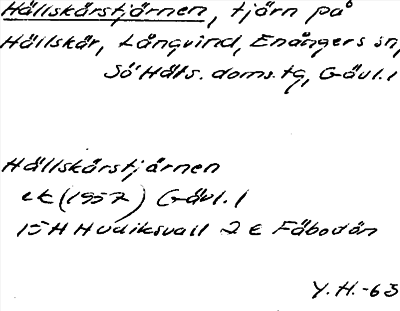 Hällskårstjärnen, tjärn på
Hällskår, Långvind, Enångers sn,
Sö Häls. doms. tg, Gävl. l
Hällskårstjärnen
ek (1957) Gävl. l
15H Hudiksvall 2 e Fäbodån
Y. H. -63